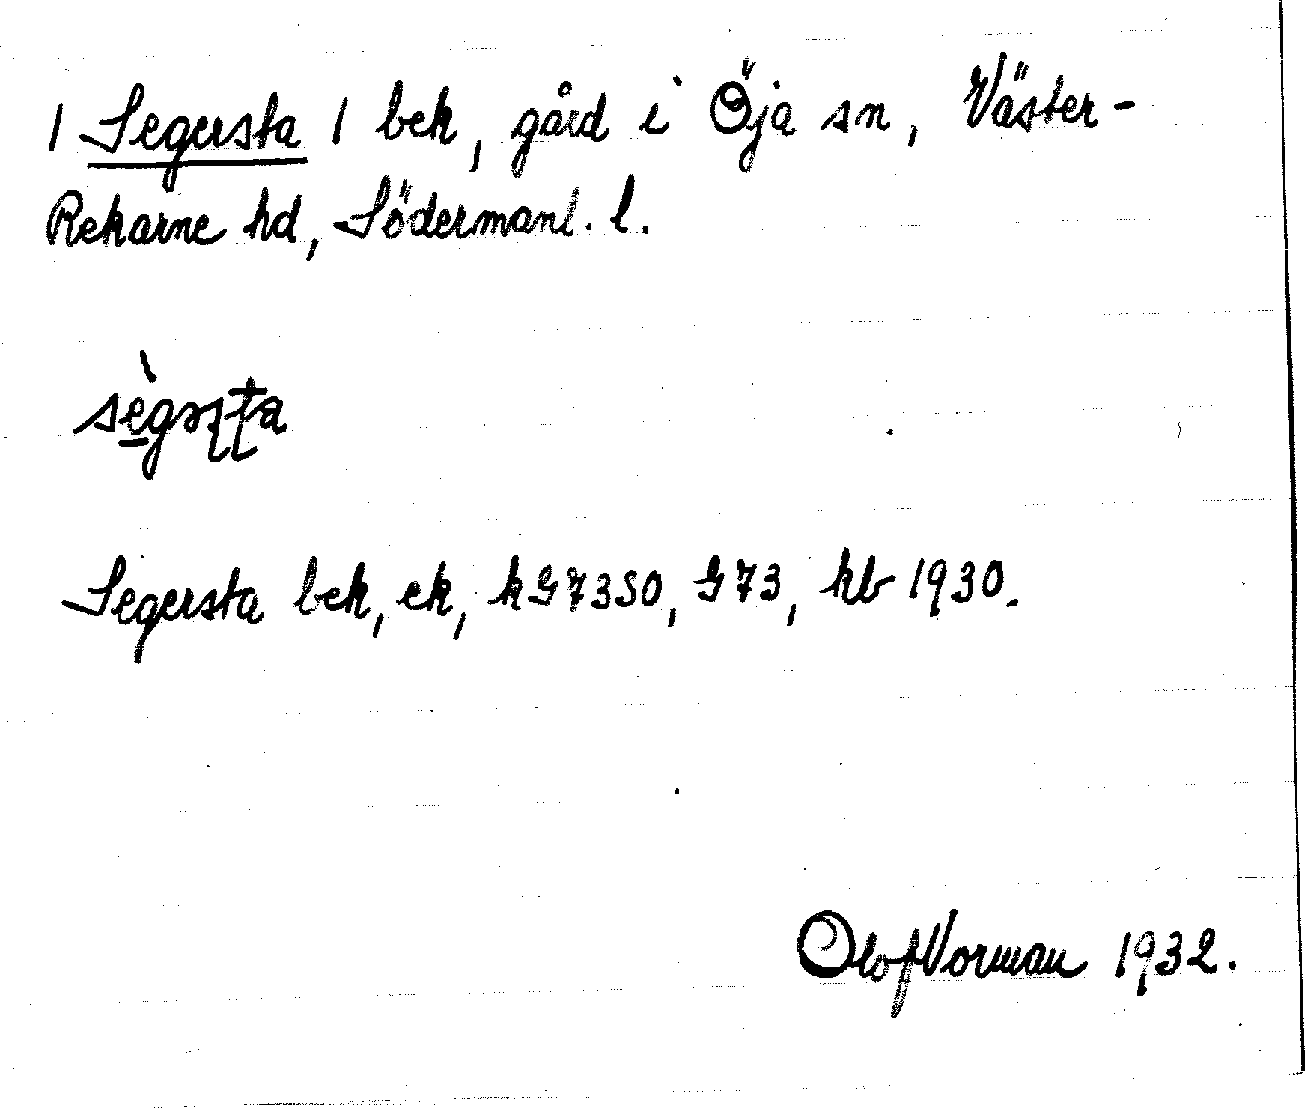 1 Segersta 1 bek, gård i Öja sn, Väster-
Rekarne hd, Södermanl. l.
sègəʂʈa
Segersta bek, ek, kG7350, G73, hb 1930.
Olof Vorman 1932.